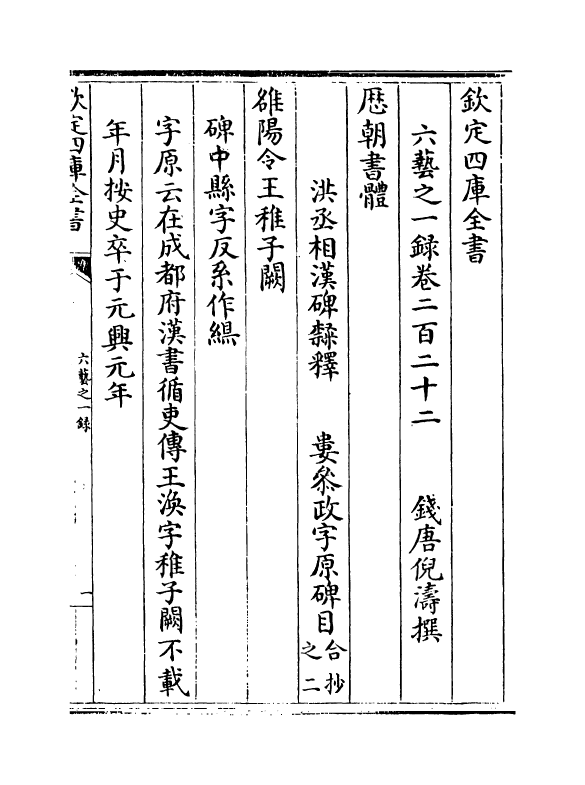 欽定四庫全書
六藝之一録卷二百二十二　錢唐倪濤撰
歴朝書體
洪丞相漢碑𨽻釋　婁叅政字原碑目合抄之二
雒陽令王稚子闕
碑中縣字反系作䋿
字原云在成都府漢書循吏傳王渙字稚子闕不載
年月按史卒于元興元年
欽定四庫全書
六藝之一録
一